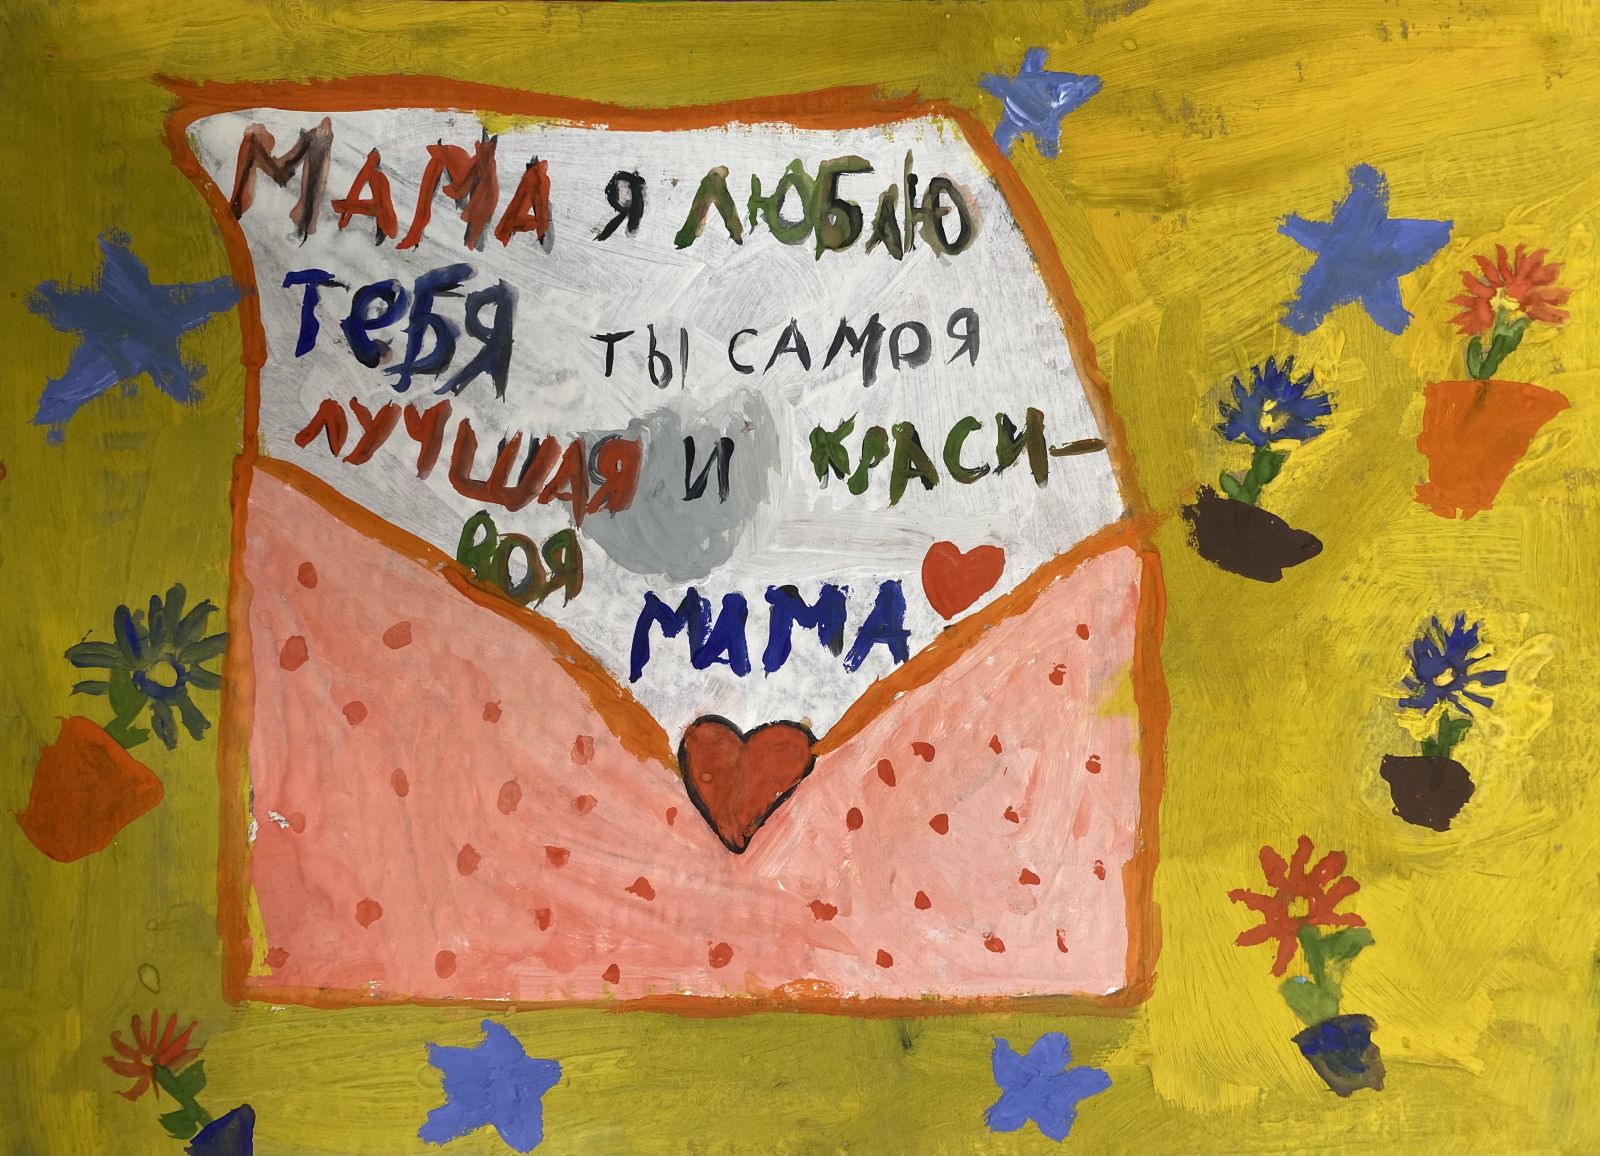 МАМА Я ЛЮБЛЮ
ТЕБЯ ТЫ САМОЯ
ЛУЧШАЯ И КРАСИ-
ВОЯ
МАМА